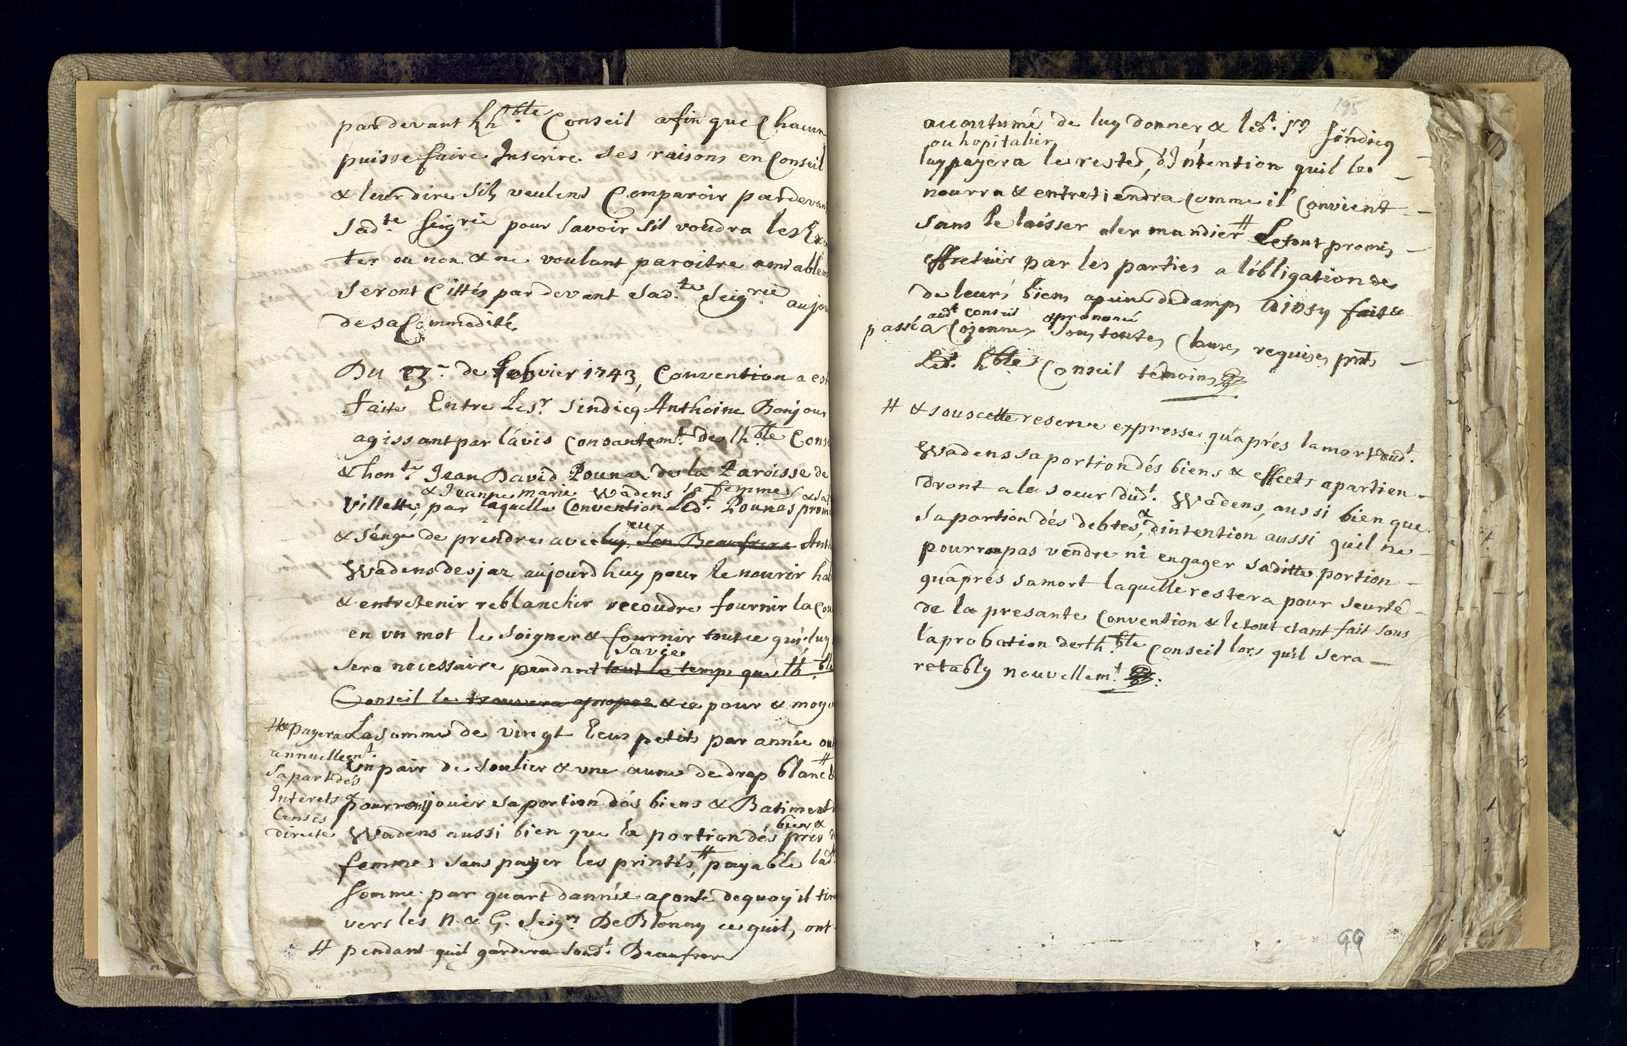 pardevant Lh.ble Conseil afin que Chacun
puisse faire Inscrire ses raisons en Conseil
& leur dire sils veulent Comparoir pardevan
Sad.te Seig.rie pour savoir sil voudra les
ter ou non & ne voulant paroitre amiablem
seront Cittés par devant Sad.te Seig.rie aujou
de sa Commodité
Du de febvrier 1743, Convention a est
faite Entre Le S.r Sindicq Anthoine Bonjour
agissant par l'avis Consantem.t de lh.ble Cons
& hon.te Jean David Pounas de la Paroisse de
& Jeanne Marie Wadens sa femme
Villette, par laquelle Convention Led.t Pounas prom
eux
& s'enge de prendre avec luy son Beaufrere Anth
Wadens desjaz aujourdhuy pour le nourir ha
& entretenir reblanchir recoudre fournir la Cou
en un mot le soigner & fournir tout ce qui luy
sa vie
sera necessaire pendant tout le temps que lh.ble
Conseil le trouvera apropoz & ce pour & moye
La somme de vingt Ecus petits par année ou
# & payera
annuellem.t
sa part dés
Interets &
Censes
directe
un pair de soulier & une aune de drap blanc
pourra jouir sa portion dés biens & Batiments
Wadens aussi bien que la portion dés prés
biens &
femme sans payer les printés # payable lad.te
somme par quart dannée aconte de quoy il tire
vers les N. & G. Seig.rs De Blonay ce quils ont
# pendant quil gardera Soud.t Beaufrere
195
acoutumé de luy donner & led.t S.r Sindicq
ou hopitalier
luy payera le reste, d'Intention quil le
nourra & entretiendra comme il Convient
sans le laisser aler mandier # Le tout promis
effectuer par les parties a lobligation de
de leurs biens apeine de damps Ainsy fait &
aud.t Conseil & prononcé
passé a sous toutes Clauses requises pnts
Led.t h.ble Conseil témoins
# & sous cette reserve expresse qu'aprés la mort dud.t
Wadens sa portion dés biens & effects apartien-
dront a la soeur dud.t Wadens, aussi bien que
sa portion dés debtes, & d'intention aussi quil ne
pourra pas vendre ni engager saditte portion
quaprés sa mort laquelle restera pour seurté
de la presante Convention & le tout etant fait sous
l'aprobation de lh.ble Conseil lors quil sera
retably nouvellem.t
99